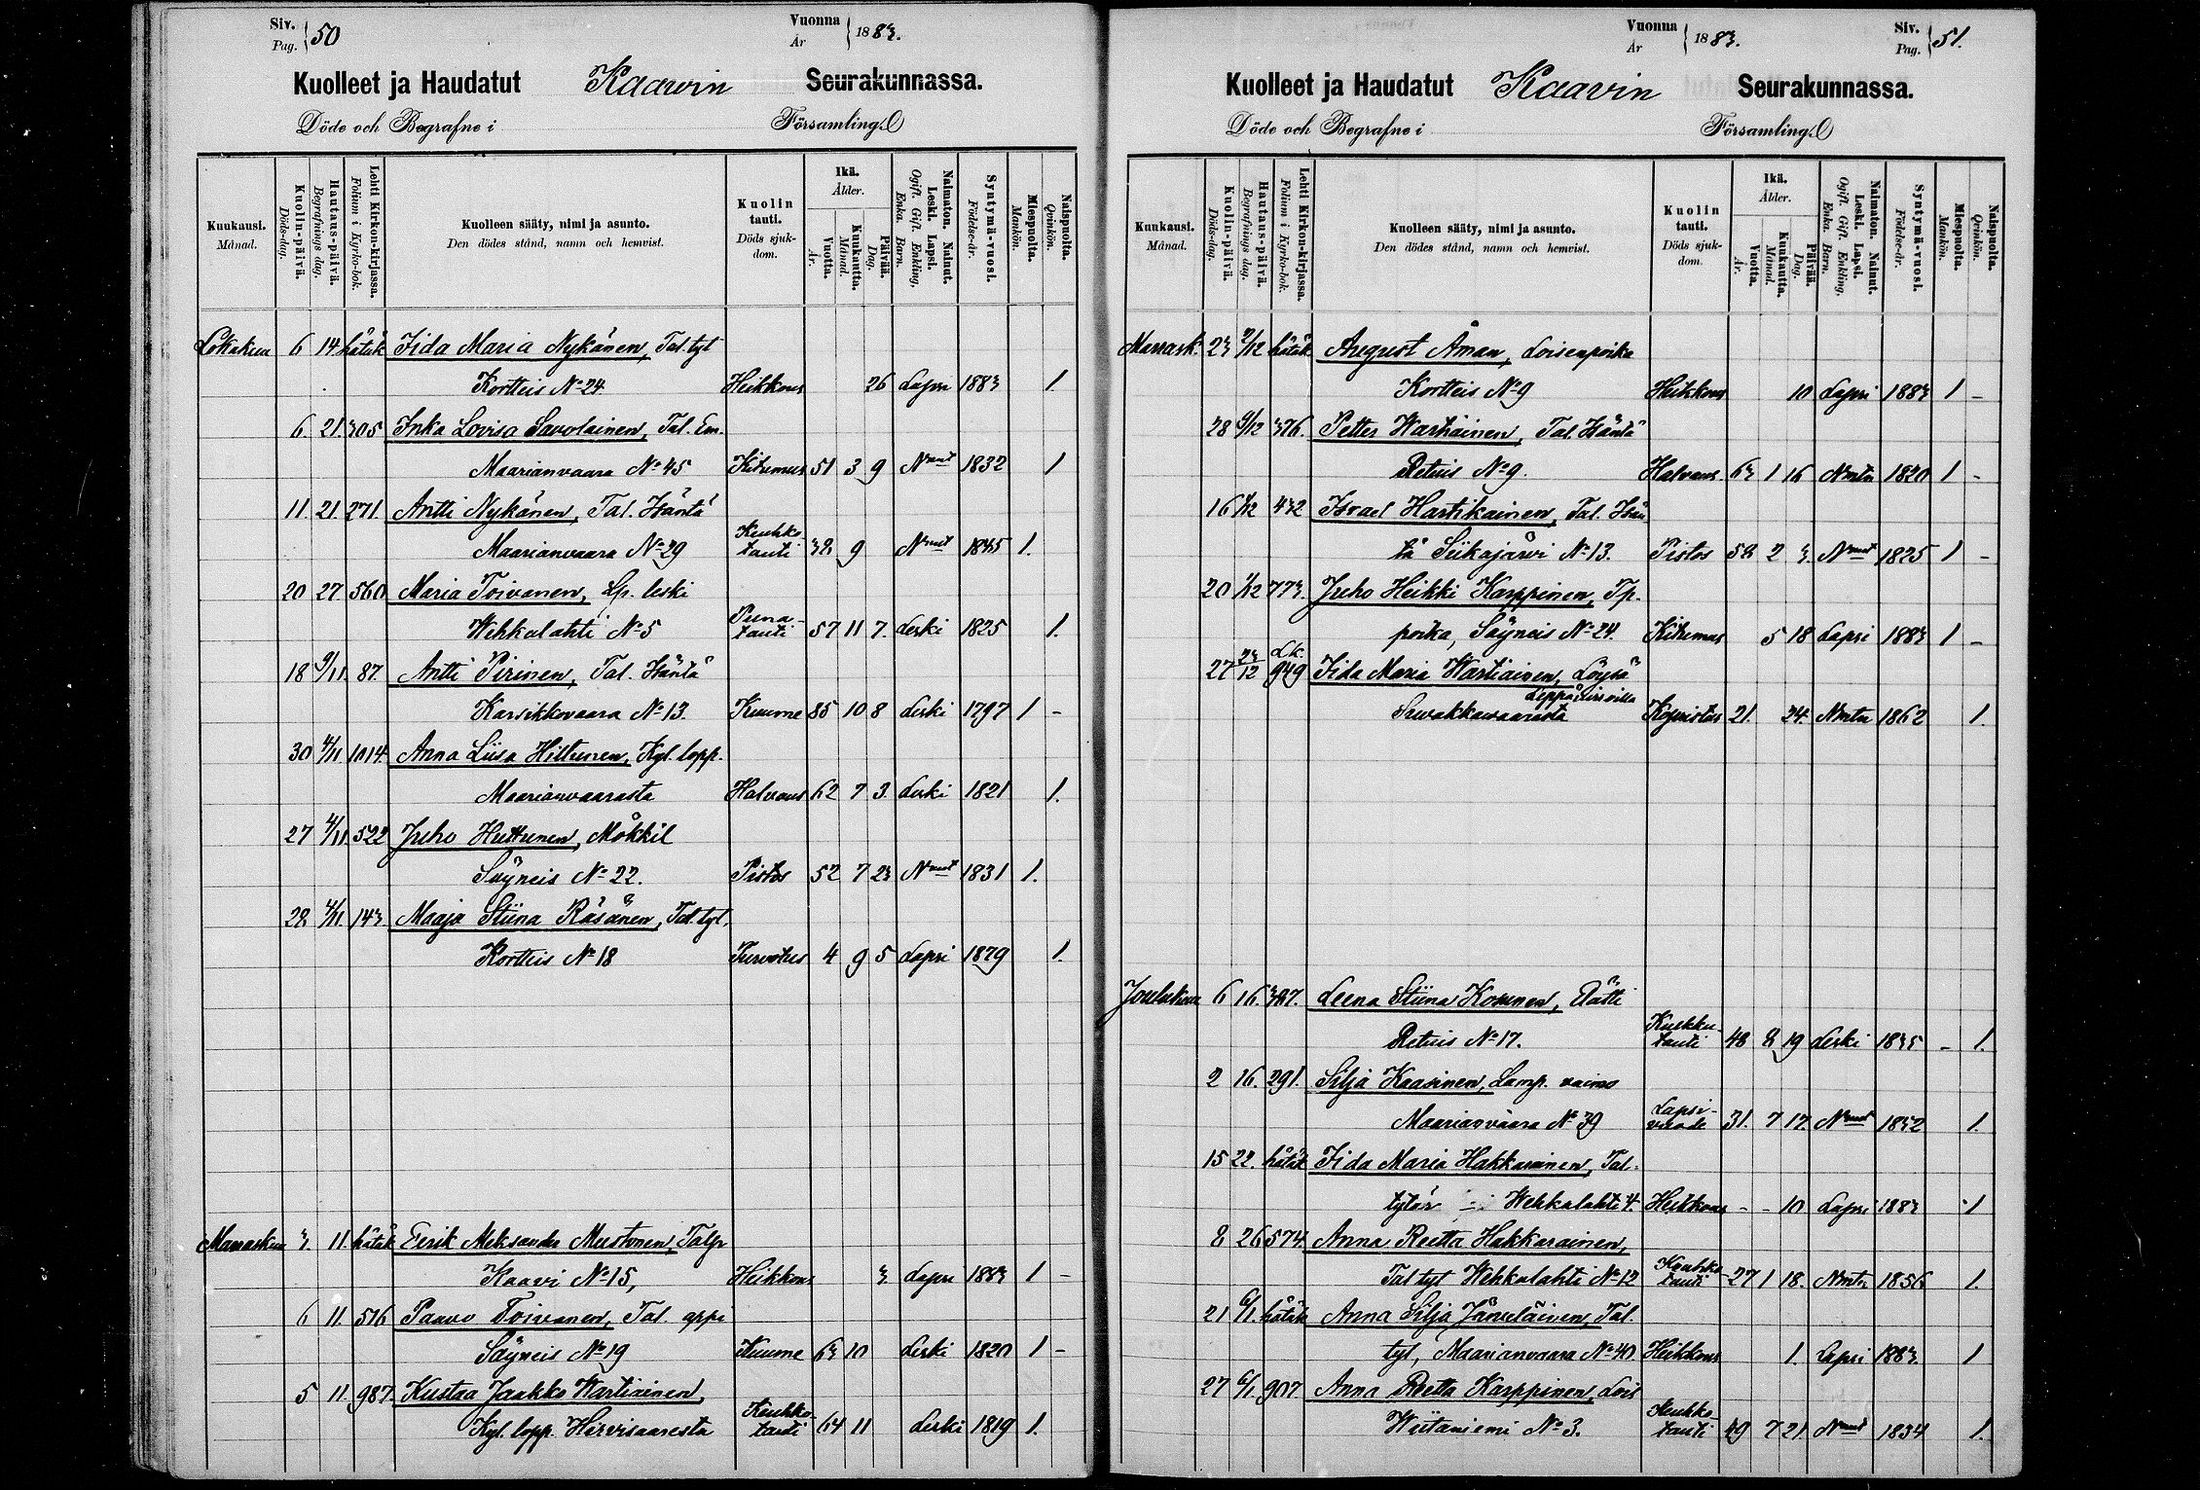 Siv. Pag. 50 Vuonna År 1883.
Kuolleet ja Haudatut Kaawin Seurakunnassa.
Döde och Begrafne i Församling.
Kuukausi. Månad. Kuolin-päivä. Döds-dag. Hautaus-päivä. Begrafnings dag. Lehti Kirkon-kirjassa. Folium i Kyrko-bok. Kuolleen sääty, nimi ja asunto. Den dödes stånd, namn och hemvist. Kuolin tauti. Döds sjukdom. Ikä. Ålder. Vuotta. År. Kuukautta. Månad. Päivää. Dag. Naimaton. Nainut. Leski. Lapsi. Ogift. Gift. Enkling, Enka. Barn. Syntymä-vuosi. Födelse-år. Miespuolta. Mankön. Naispuolta. Qvinkön.
Lokakuu 6 14 håtäk Iida Maria Nykänen, Tal. tyt
Kortteis No 24. Heikkous 26 Lapsi 1883 1.
6. 21. 305 Inka Lovisa Savolainen, Tal. Em.
Maarianvaara No 45 Kitumus 51 3 9 Nnut 1832 1
11. 21. 271. Antti Nykänen, Tal. Isäntä
Maarianvaara No 29 Keuhko-tauti 38 9 Nnut 1845 1.
20 27. 560 Maria Toivanen, Lp. leski
Wehkalahti No 5 Puna-tauti 57 11 7. Leski 1825 1.
18 9/11. 87. Antti Pirinen, Tal. Isäntä
Karsikkovaara No 13. Kuume 85 10 8 Leski 1797 1 -
30 4/11 1014. Anna Liisa Hiltunen, Kyl. lopp.
Maarianvaarasta Halvaus 62 7 3. Leski 1821 1.
27 4/11. 522 Juho Huttunen, Mökkil
Säyneis No 22. Pistos 52 7 23 Nnut 1831 1.
28 4/11. 143 Maaja Stiina Räsänen, Tal. tyt.
Kortteis No 18 Turvotus 4 9 5 Lapsi 1879 1.
Marraskuu 3. 11. håtäk Eerik Aleksander Mustonen, Talp
Kaavi No 15, Heikkous 3. Lapsi 1883 1 -
6 11. 516 Paavo Toivanen, Tal. appi
Säyneis No 19 Kuume 63 10 Leski 1820 1 -
5 11. 987. Kustaa Jaakko Wartiainen,
Kyl. lopp. Hirvisaaresta Keuhko-tauti 64 11 Leski 1819 1.
Vuonna År 1883. Siv. Pag. 51.
Kuolleet ja Haudatut Kaavin Seurakunnassa.
Döde och Begrafne i Församling.
Kuukausi. Månad. Kuolin-päivä. Döds-dag. Hautaus-päivä. Begrafnings dag. Lehti Kirkon-kirjassa. Folium i Kyrko-bok. Kuolleen sääty, nimi ja asunto. Den dödes stånd, namn och hemvist. Kuolin tauti. Döds sjukdom. Ikä. Ålder. Vuotta. År. Kuukautta. Månad. Päivää. Dag. Naimaton. Nainut. Leski. Lapsi. Ogift. Gift. Enkling, Enka. Barn. Syntymä-vuosi. Födelse-år. Miespuolta. Mankön. Naispuolta. Qvinkön.
Marrask. 23 2/12 håtäk August Åman, Loisenpoika
Kortteis No 9 Heikkous 10 Lapsi 1883 1 -
28 9/12 376. Petter Wartiainen, Tal. Isäntä
Retuis No 9. Halvaus. 63 1 16 Nmtn 1820 1 -
16 1/12 432 Israel Hartikainen, Tal. Isän
tä Siikajärvi No 13. Pistos 58 2 3. Nnut 1825 1 -
20 1/12 773. Juho Heikki Karppinen, Tp.
poika, Säyneis No 24. Kitumus 5 18 Lapsi 1883 1 -
27 23/12 Lk. 949 Iida Maria Wartiainen, Löysä
Suvakkavaarasta Leppävirroilla Kopristus 21. 24. Nmtn 1862 1.
Joulukuu 6 16. 387. Leena Stiina Kosunen, Rätti
Retuis No 17. Keuhko-tauti 48 8 19 Leski 1835 - 1.
2 16. 291. Silja Kaasinen, Lamp. vaimo
Maarianvaara No 39 Lapsi-vuode 31. 7 17. Nnut 1852 1.
15 22. håtäk Iida Maria Hakkarainen, Tal.
tytär Wehkalahti 4. Heikkous - - 10 Lapsi 1883 1
8 26 574. Anna Reetta Hakkarainen,
Tal tyt Wehkalahti No 12 Keuhko-tauti 27 1 18. Nmtn 1856 1.
21 6/1. håtäk Anna Silja Järveläinen, Tal.
tyt, Maarianvaara No 40. Heikkous 1. Lapsi 1883. 1
27 6/1. 907 Anna Reetta Karppinen, Lois
Wiitaniemi No 3. Keuhko-tauti 49 7 21. Nnut 1834 1.